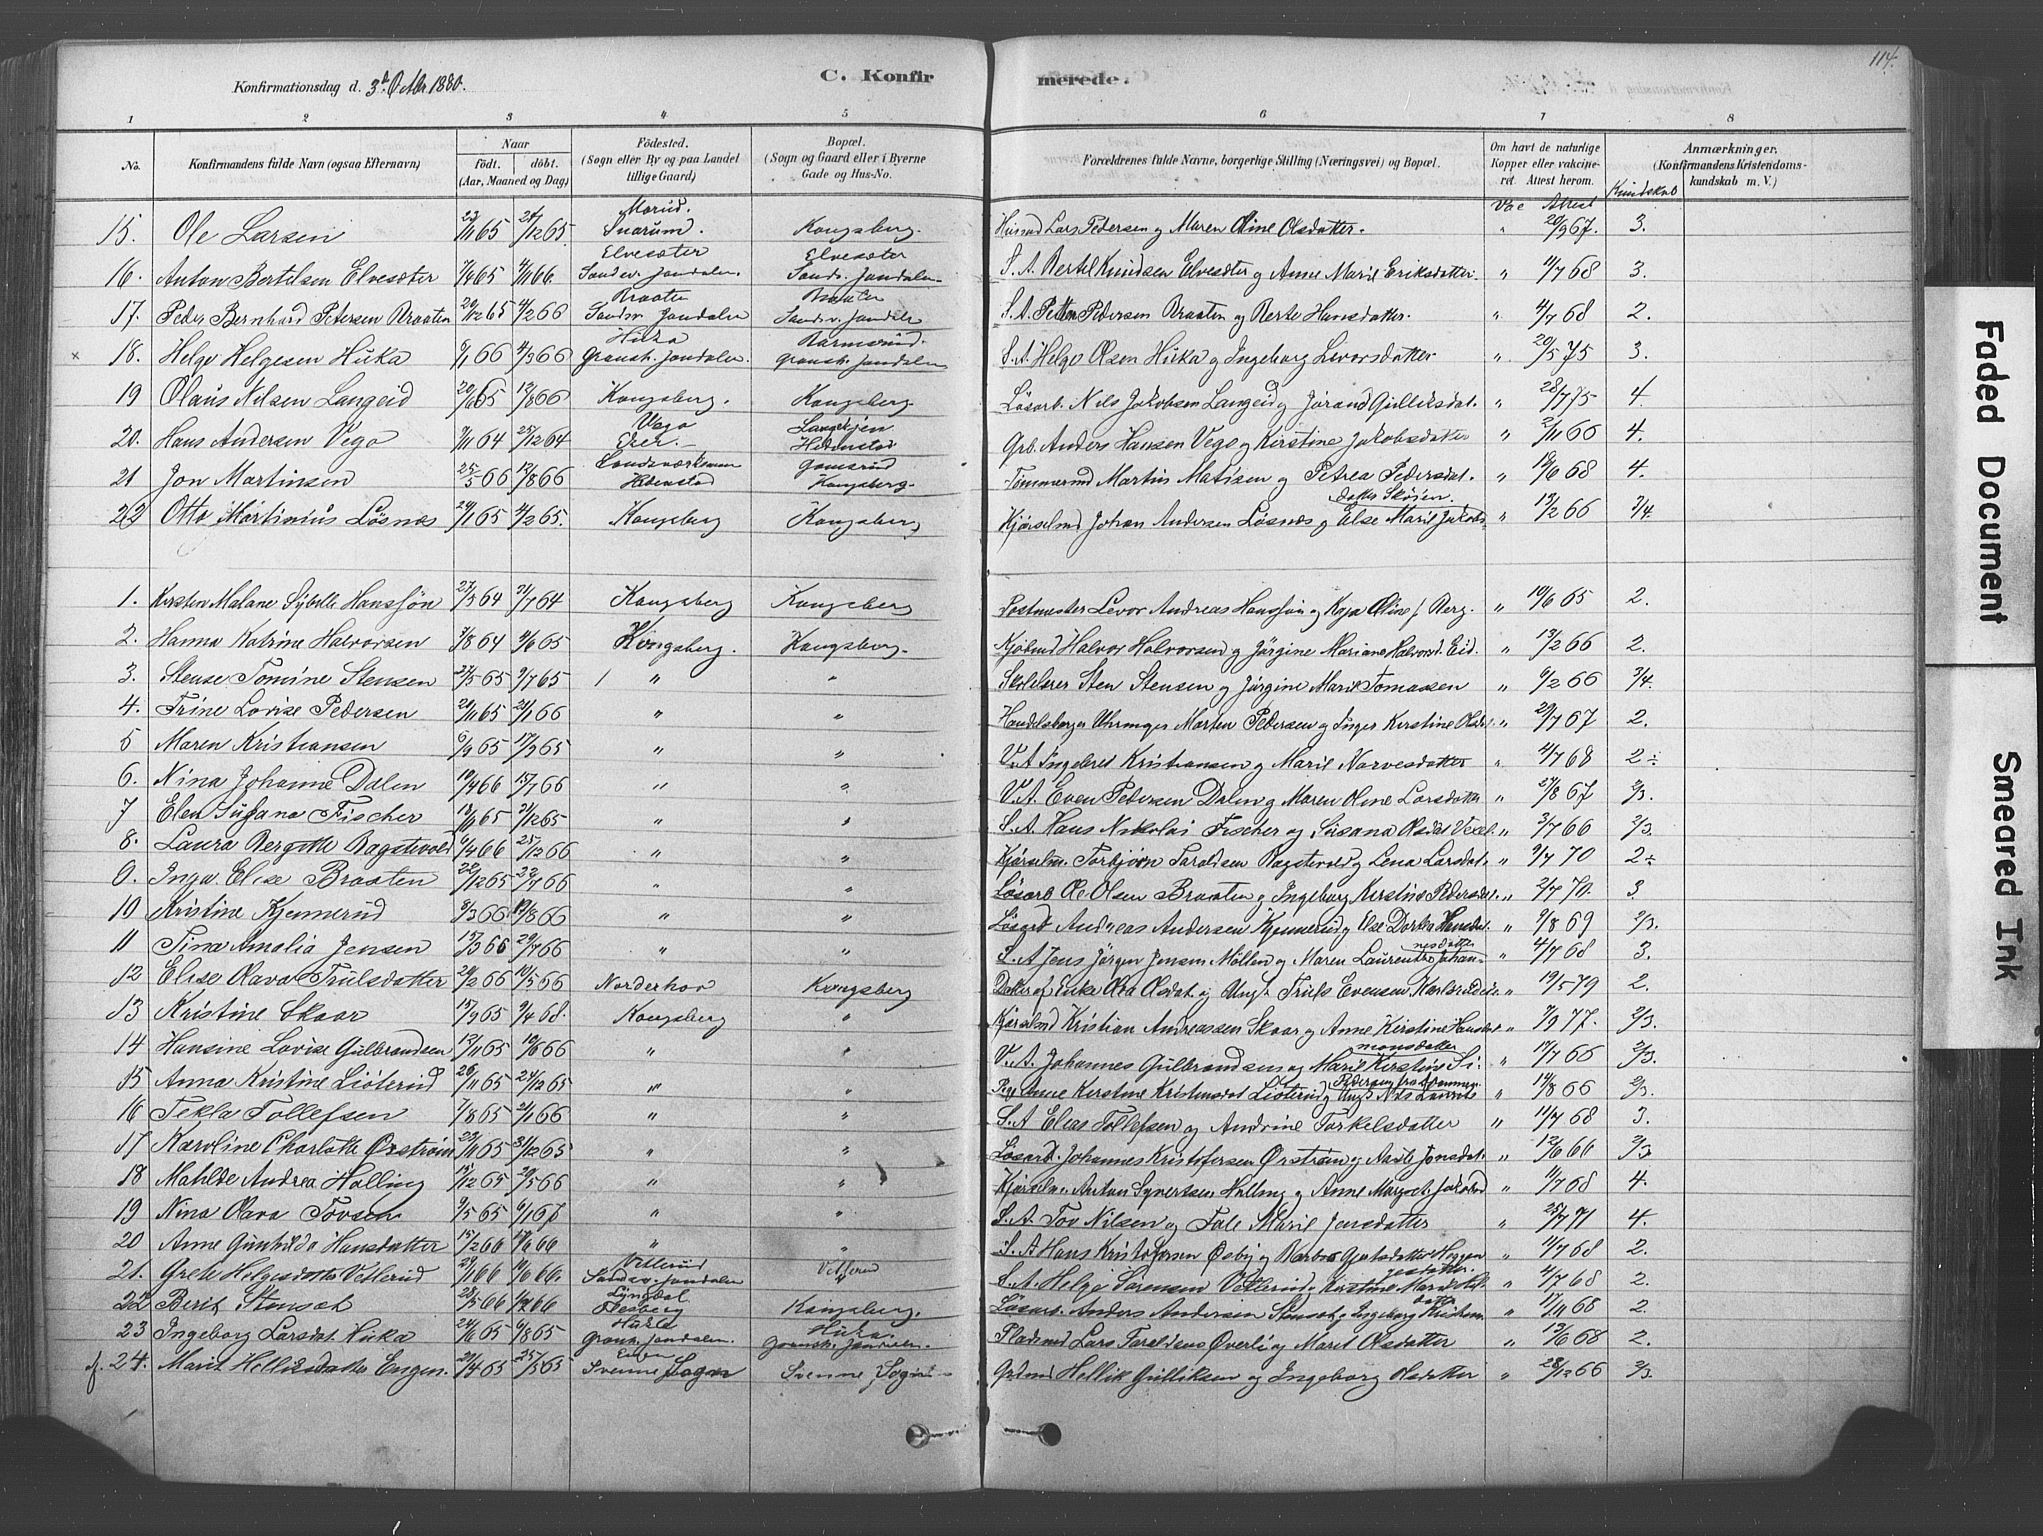 114.
Konfirmationsdag d. 3d Octbr 1880.
C. Konfirmerede.
1 2 3 4 5 6 7 8
No. Konfirmandens fulde Navn (ogsaa Efternavn) Naar født. døbt. (Aar, Maaned og Dag) Födested. (Sogn eller By og paa Landet tillige Gaard) Bopæl. (Sogn og Gaard eller i Byerne Gade og Hus-No.
Forældrenes fulde Navne, borgerlige Stilling (Næringsvei) og Bopæl. Om havt de naturlige Kopper eller vakcineret. Attest herom. Anmærkninger. (Konfirmandens Kristendomskundskab m. V.)
Vac Attest Kundskab
15. Ole Larsen Morud. Snarum. Kongsberg. Lars Pedersen og Maren Oline Olsdatter. " 20/9 67. 3.
16. Anton Bertelsen Elvesæter 4/11 66. Elvesæter Sandsv. Jondalen. Elvesæter Sandsv. Jondalen S. A. Bertel Knudsen Elvesæter og Anne Marie Eriksdatter " 11/7 68 3.
17. Peder Bernhard Petersen Braaten 20/12 65 4/2 66 Braaten Sandsv. Jondalen Braaten Sandsv. Jondalen S. A. Petter Pedersen Braaten og Berte Hansdatter. " 4/7 68 2.
× 18. Helge Helgesen Hiika 4/3 66 Hiika Gransh. Jondalen. Gransh. Jondalen S. A. Helge Olsen Hiika og Ingeborg Levorsdatter " 20/5 75 3.
19 Olaus Nilsen Langeid 20/6 65 Kongsberg. Kongsberg Løsarb. Nils Jakobsen Langeid og Jørand Gulliksdat. " 28/7 75 4.
20. Hans Andersen Vego 25/12 64 Vego Eker. Hedenstad Grb. Anders Hansen Vego og Kirstine Jakobsdatter " 2/11 66 4.
21 Jon Martinsen 25/5 66 12/8 66 Hedenstad Gomsrud Kongsberg. Tømmermd Martin Matisen og Petrea Pedersdat. " 19/6 68 4.
22 Otto Martinius Løsnæs 4/2 65. Kongsberg Kongsberg Kjørselmd Johan Andersen Løsnæs og Else Marie Jakobsdatter Skøien. " 12/2 66 3/4.
1. Kirsten Malene Sybille Hansson 27/3 64 31/7 64 Kongsberg Kongsberg Postmester Levor Andreas Hansson og Kaja Oline f. Berg. " 19/6 65 2.
2. Hanna Katrine Halvorsen 7/8 64 Kongsberg. Kongsberg. Kjøbmd Halvor Halvorsen og Jørgine Mariane Halvorsd. Eid. " 13/2 66 2.
3. Stense Tomine Stensen 27/5 65 9/7 65 " " Skolelærer Sten Stensen og Jørgine Marie Tomassen " 6/2 66 3/4.
4. Trine Lovise Pedersen 20/11 65 21/1 66 " " Handelsborger Uhrmager Morten Pedersen og Inger Kirstine Olsd. " 29/7 67 2.
5 Maren Kristiansen 6/9 65 17/9 65 " " V. A. Ingebret Kristiansen og Marie Narvesdatter " 4/7 68 2÷
6. Nina Johanne Dalen 10/4 66 15/7 66 " " V. A. Even Pedersen Dalen og Maren Oline Larsdatter " 27/8 67 2/3.
7 Elen Susana Fischer 12/11 65 21/12 65 " " S. A. Hans Nikolai Fischer og Susana Olsdat " 3/7 66 2/3.
8. Laura Bergitte Bagstevold 6/4 66 25/12 66 " " Kjørselm. Torbjørn Taraldsen Bagstevold og Lena Larsdat. " 9/7 70 2÷
9. Inga Elise Braaten 22/12 65 22/7 66 " " Løsarb Ole Olsen Braaten og Ingeborg Kirstine Pedersdat. " 2/7 70. 3
10 Kristine Kjennerud 9/3 66. 19/8 66 " " Løsarb Andreas Andersen Kjennerud og Else Dorthea Hansdat. " 9/8 69 2/3.
11 Tina Amalia Jensen 15/3 66 29/7 66 " " S. A Jens Jörgen Jensen Møllen og Maren Laurentze Johannesdatter " 4/7 68 3.
12 Elise Olava Trulsdatter 20/2 66 10/5 66 Norderhov Kongsberg Datter af Enke Olea Olsdat. og Ungk. Truls Evensen " 19/5 79 2.
13 Kristine Skaar 15/9 65 9/4 68. Kongsberg " Kjørselmd Kristian Andreassen Skaar og Anne Kirstine Hansdat. " 7/9 77. 2/3.
14 Hansine Lovise Gulbrandsen 13/11 65 10/6 66 " " V. A. Johannes Gulbrandsen og Marie Kirstine Simonsdatter " 17/7 66 2/3.
15 Anna Kristine Liøterud 26/11 65 24/12 65 " " Pige Anne Kirstine Kristensdat Liøterud og Ungk Nils Laurits Pedersen fra Drammen. " 14/8 66 2/3.
16 Tekla Tollefsen 7/8 65 2/1 66 " " S. A Elias Tollefsen og Andrine Torkelsdatter " 11/7 68 3.
17 Karoline Charlotte Ørstrøm 23/11 65 31/12 65 " " Løsarb. Johannes Kristofersen Ørstrøm og Aaste Jonsdat. " 12/6 66 2/3
18 Matilde Andrea Halling 15/12 65 20/5 66 " " Kjørselm. Anton Syversen Halling og Anne Margret. Jakobsd " 11/7 68 4.
19 Nina Olava Tovsen 9/5 65 6/1 67 " " S. A. Tov Nilsen og Tale Marie Jensdatter " 25/7 71 4.
20 Anne Gunhilde Hansdatter 15/2 66 " " S. A Hans Kristofersen Østby og Barbro Gjertsdatter Heggen " 11/7 68 2.
21. Grete Helgesdatter Vetterud 24/1 66 10/6 66. Vetterud Sandsv. Jondalen Vetterud S. A. Helge Sørensen Vetterud og Kirstine Marie " 4/7 68 2.
22 Berit Stensæt 28/5 66 Lyngdal Flesberg Kongsberg. Løsarb. Anders Andersen Stensæt og Ingeborg Kristiansdatter " 17/11 68 2.
23 Ingeborg Larsdat. Hiika 24/6 65 6/8 65 Hiika Gransh. Jondalen. Hiika. Gransh. Jondalen. Pladsmd Lars Taraldsen Øverli og Marit Olsdatter " 13/6 68 2.
24. Marit Helliksdatter Engen. 20/4 65 25/5 65 Engen Svenne Sogn Svenne Sogn Grdmd Hellik Gulliksen og Ingeborg Olsdatter " 28/12 66 2/3.
Faded Document
Smeared Ink